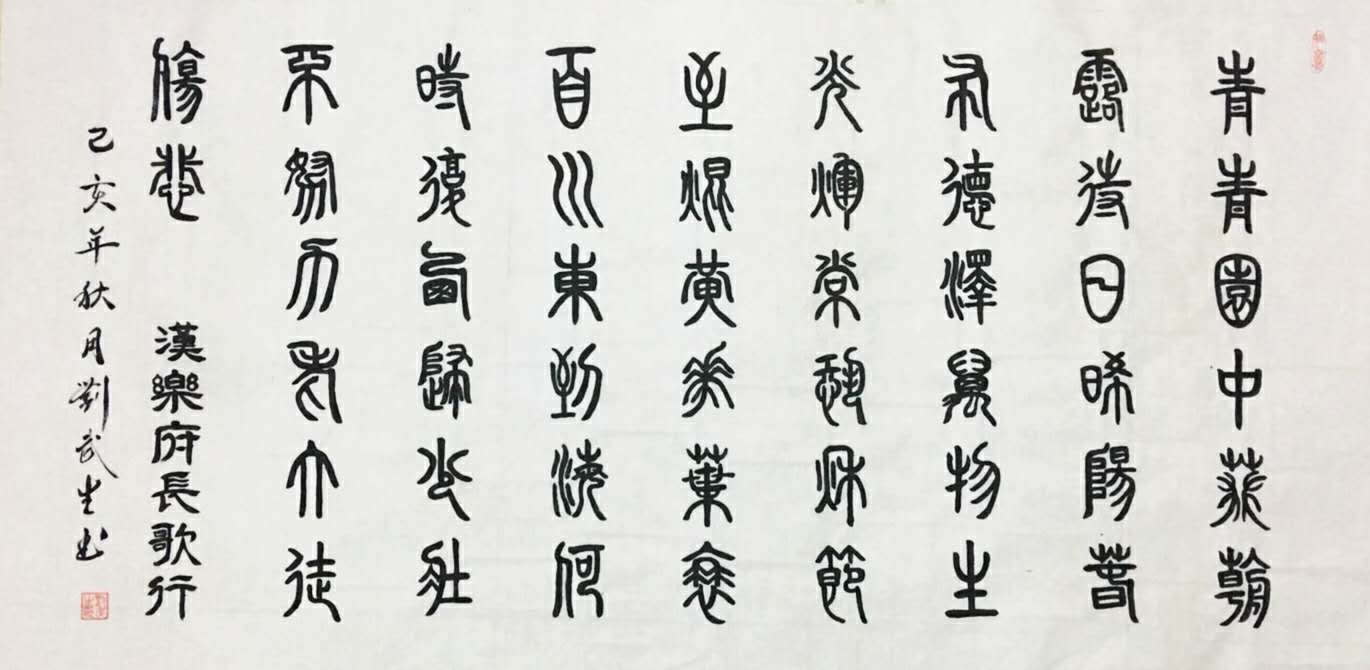 青青園中葵朝
露待日晞陽春
布德澤萬物生
光煇常恐秋節
至焜黃華葉衰
百川東到海何
時復西歸少壯
不努力老大徒
傷悲 漢樂府長歌行
己亥年秋月劉武生书